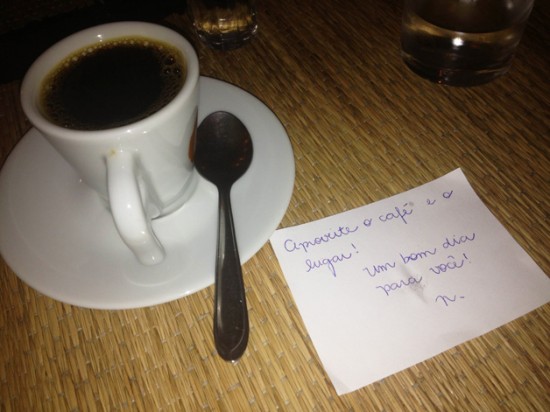 Aproveite o café e o
lugar!
Um bom dia
para você!
N.